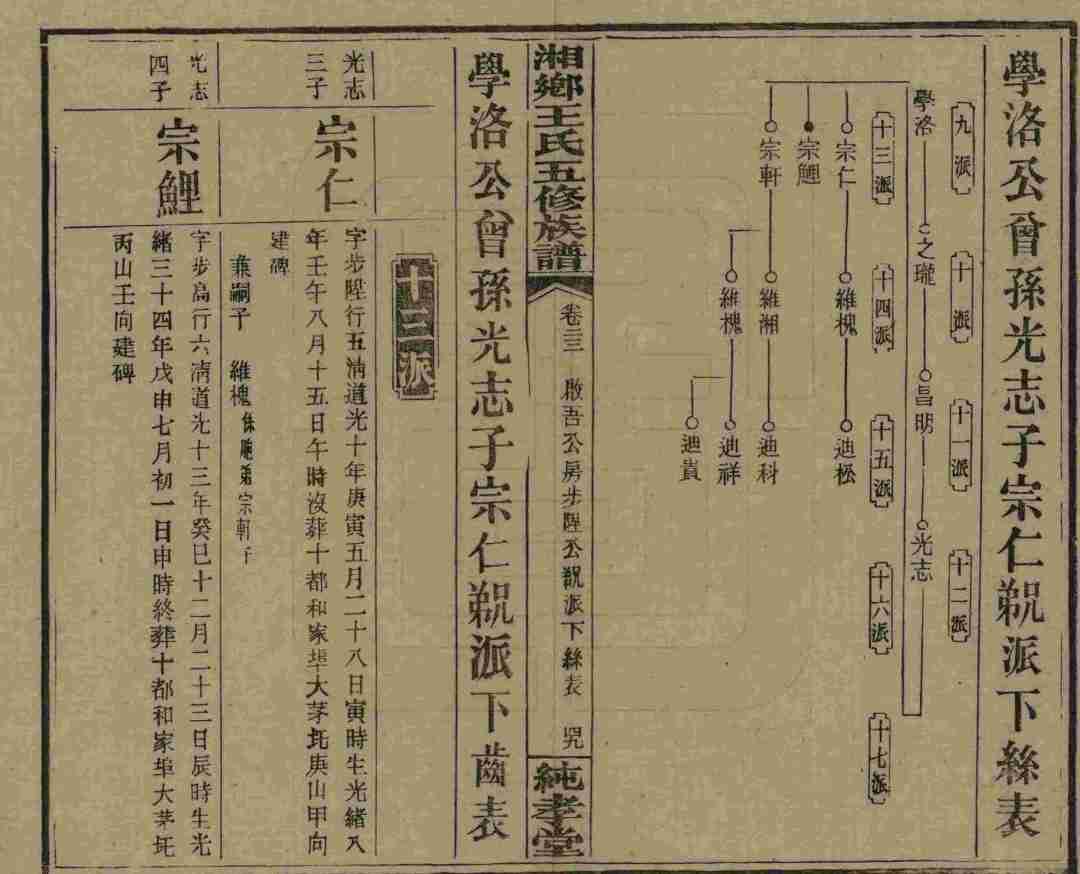 學洛公曾孫光志子宗仁覜派下絲表
九派
十派
十一派
十二派
學洛
之瓏
昌明
光志
十三派
十四派
十五派
十六派
十七派
宗仁
維槐
迪松
宗鯉
宗軒
維湘
迪科
維槐
迪祥
迪貴
湘鄉王氏五修族譜
卷三三 啟吾公房步陞公覜派下絲表
純孝堂
學洛公曾孫光志子宗仁覜派下齒表
十三派
光志
三子
宗仁
字步陞行五清道光十年庚寅五月二十八日寅時生光緒八
年壬午八月十五日午時沒葬十都和家埠大茅坵庚山甲向
建碑
兼嗣子 維槐係胞弟宗軒子
光志
四子
宗鯉
字步高行六清道光十三年癸巳十二月二十三日辰時生光
緒三十四年戊申七月初一日申時終葬十都和家埠大茅坵
丙山壬向建碑